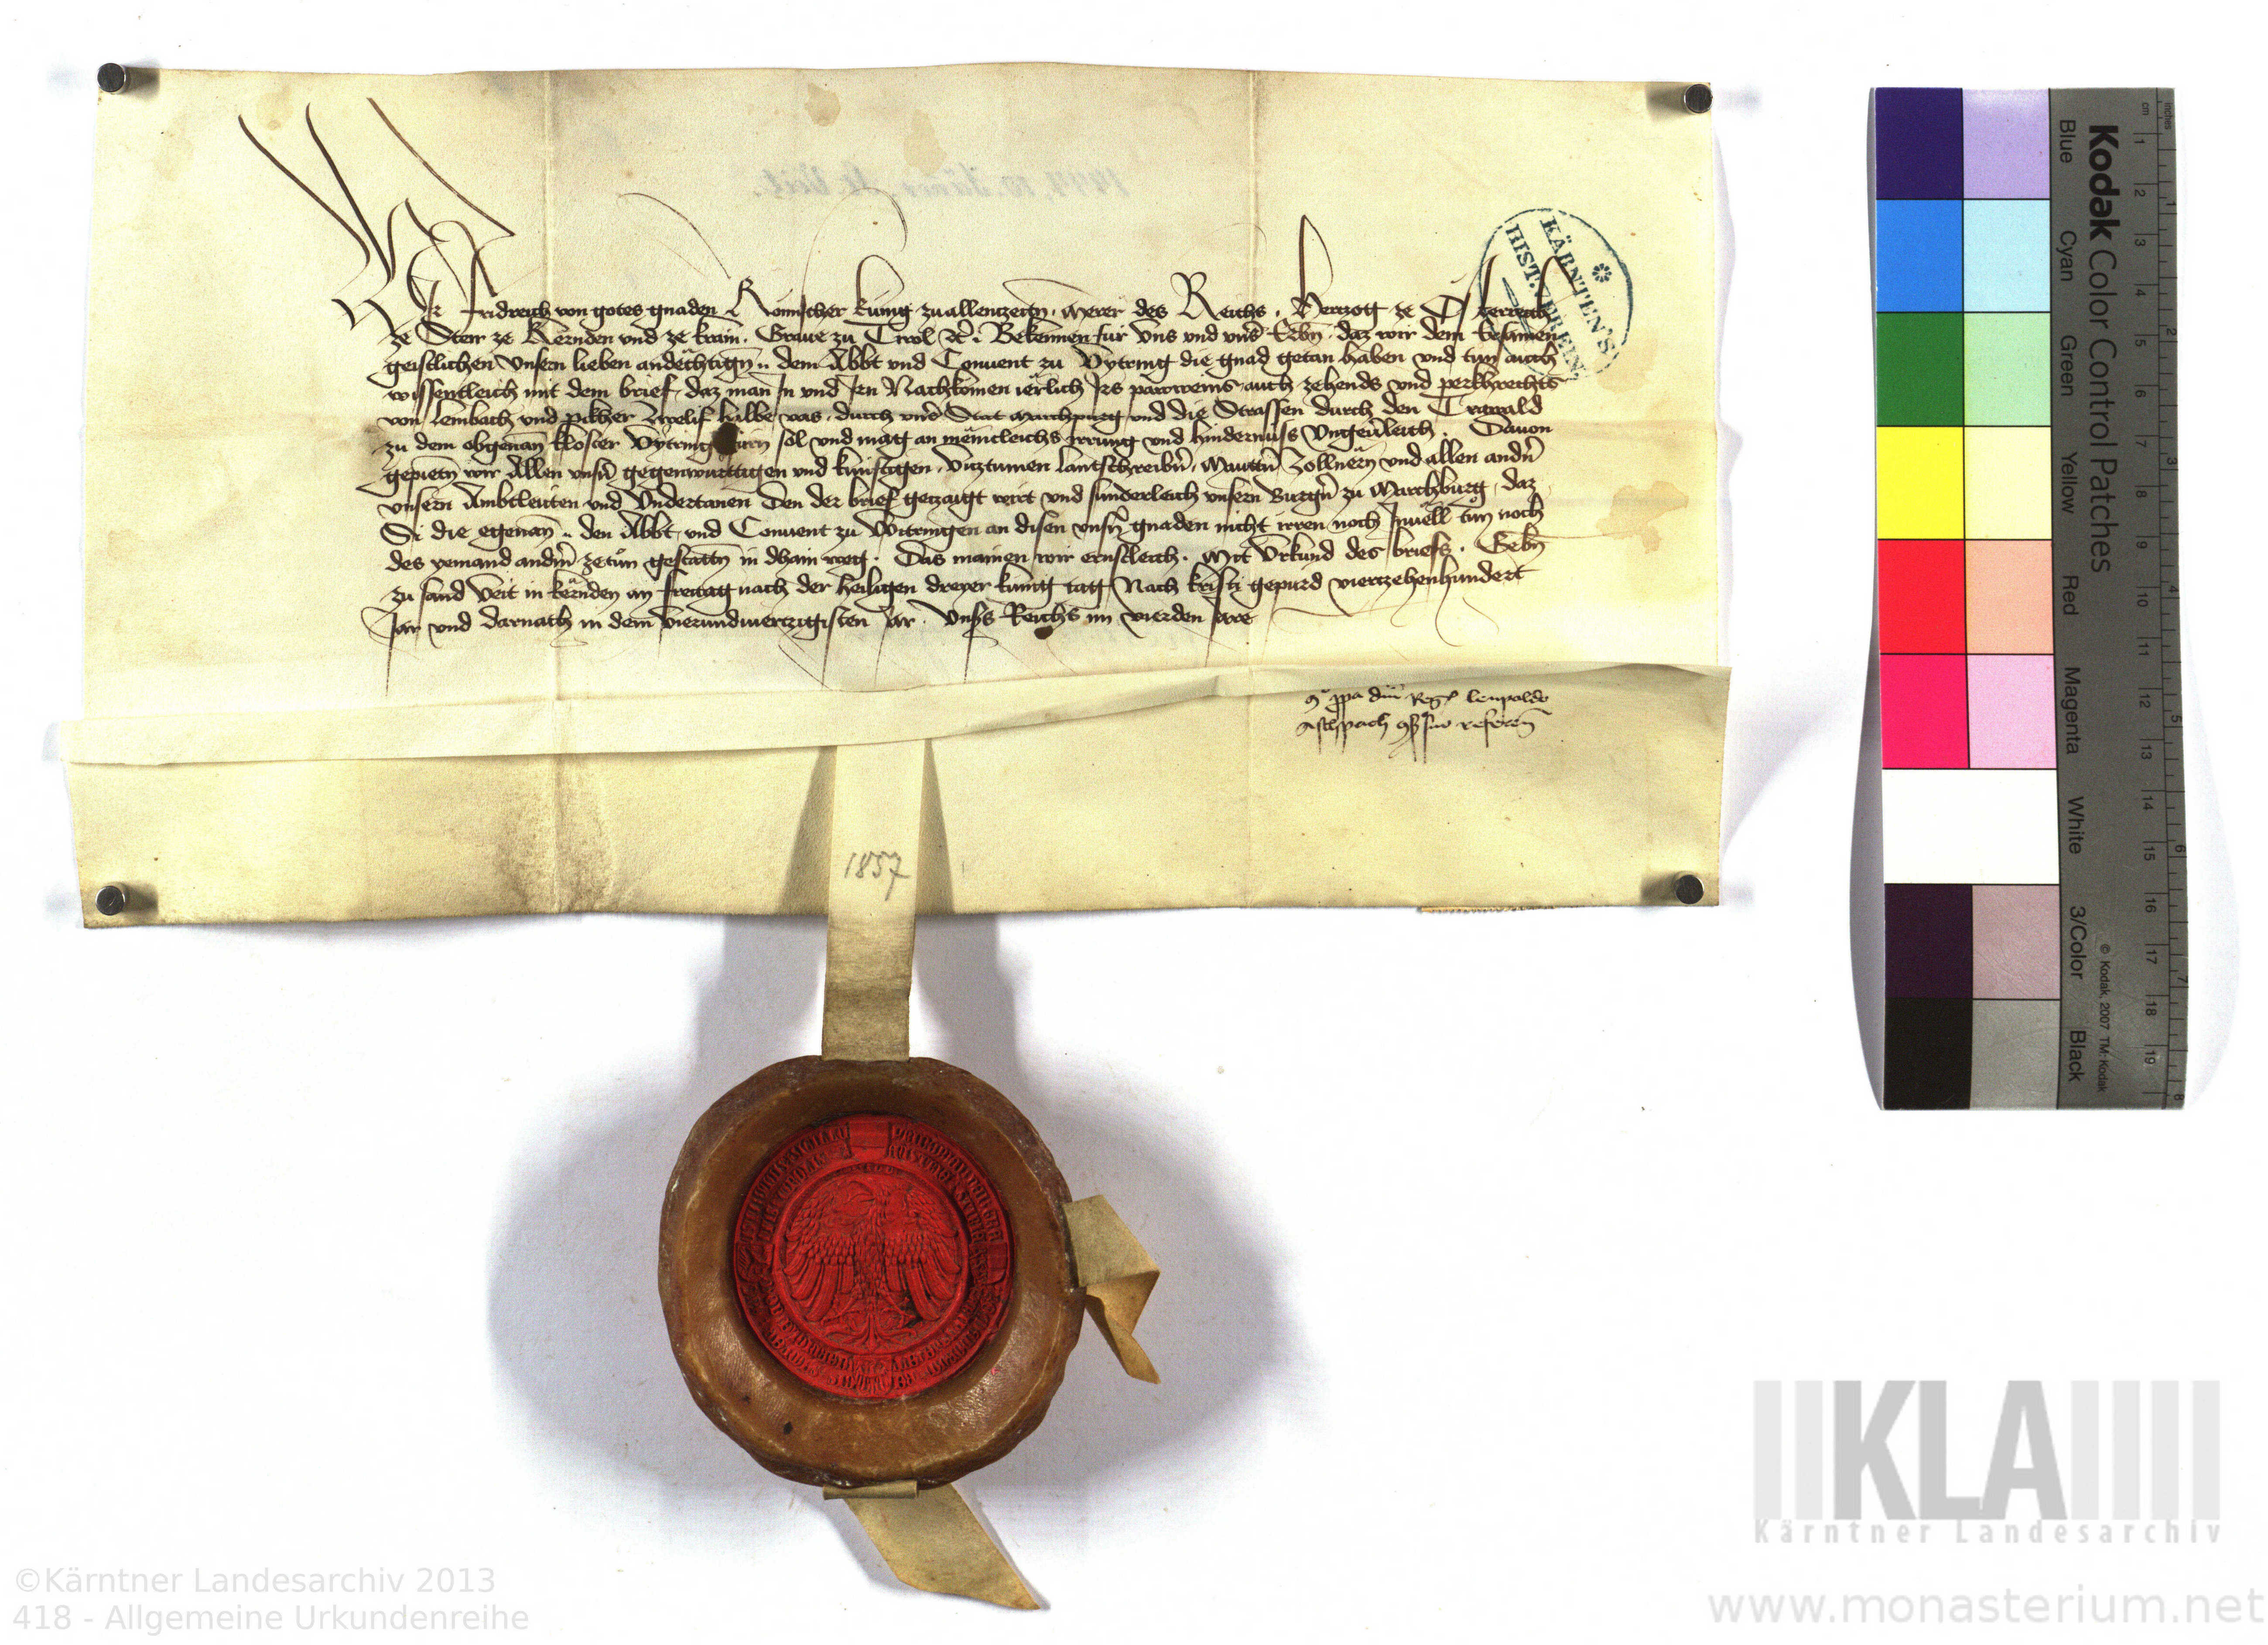 Wir Fridreich von gotes gnaden Römischer kunig zuallenczeitn, merer des Reichs, Herczog ze Österreich
ze Steir ze Kernden und ze krain, Graue zu Tirol etc. Bekennen fur uns und unser Erbn, daz wir dem Ersamen
geistlichen unsern lieben andechtign .. dem Abbt und Conuent zu Vytring die gnad getan haben und tun auch
wissentleich mit dem brief, daz man In und Irn Nachkomen ierlich Irs pawweins, auch zehends und perkhrechts
von Lembach und pikher zwelif halbe vas, durch unser Stat Marchpurg und die Strassen durch den Trawald
zu dem obgenan kloster Vytring furn sol und mag an menicleichs irrung und hindernuss ungeuerleich. Dauon
gepietn wir Allen unsern gegenwurttigen und kunftigen, viztumen lantschreibern, Mauttern Zollnern und allen andern
unsern Ambtleuten und Undertanen den der brief geczaigt wirt und sunderleich unsern Burgern zu Marchburg, daz
Si die egenan .. den Abbt und Conuent zu Vitringen an disen unsern gnaden nicht irren noch Inuell tun noch
des yemand andern zetun gestattn in dhain weg. Das mainen wir ernstleich. Mit Urkund des briefs. Gebn
zu sand Veit in kernden an freitag nach der heiligen dreyer kunig tag Nach kristi gepurd vierczehenhundert
Jar und darnach in dem vierundvierczigisten Jar. Unsers Reichs im vierden Jare
Co ppa dni Regis leupoldo
Aschpach consiliario referen
KÄRNTEN'S
HIST. VEREIN
1857
Kodak Color Control Patches
Blue Cyan Green Yellow Red Magenta White 3/Color Black
© Kodak, 2007 TM: Kodak
cm 1 2 3 4 5 6 7 8 9 10 11 12 13 14 15 16 17 18 19
inches 1 2 3 4 5 6 7 8
KLA
Kärntner Landesarchiv
©Kärntner Landesarchiv 2013
418 - Allgemeine Urkundenreihe
www.monasterium.net